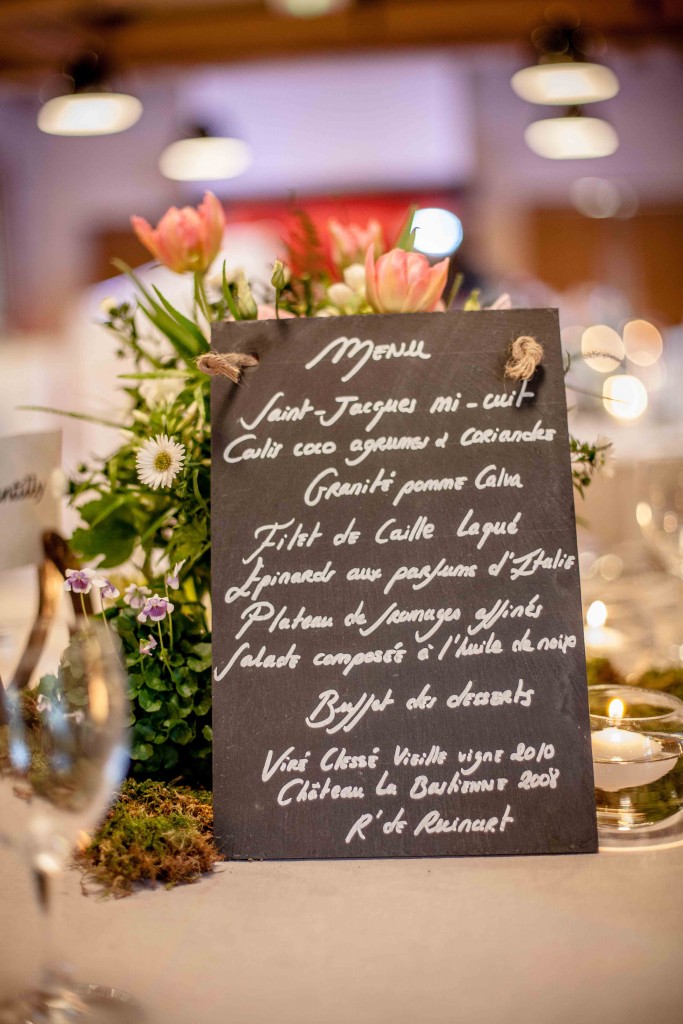 Menu
Saint-Jacques mi-cuit
Coulis coco agrumes & coriandes
Granité pomme Calva
Filet de Caille Laqué
Épinards aux parfums d'Italie
Plateau de fromages affinés
Salade composée à l'huile de noix
Buffet des desserts
Viré Clessé Vieille vigne 2010
Château La Bastienne 2008
R' de Ruinart